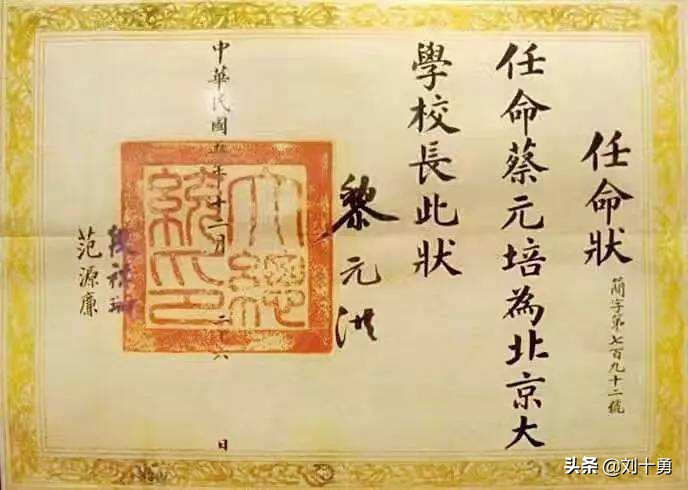 任命狀
簡字第七百九十二號
任命蔡元培為北京大
學校長此狀
黎元洪
大總統印
中華民國五年十二月二十六日
段祺瑞
范源廉
头条 @刘十勇